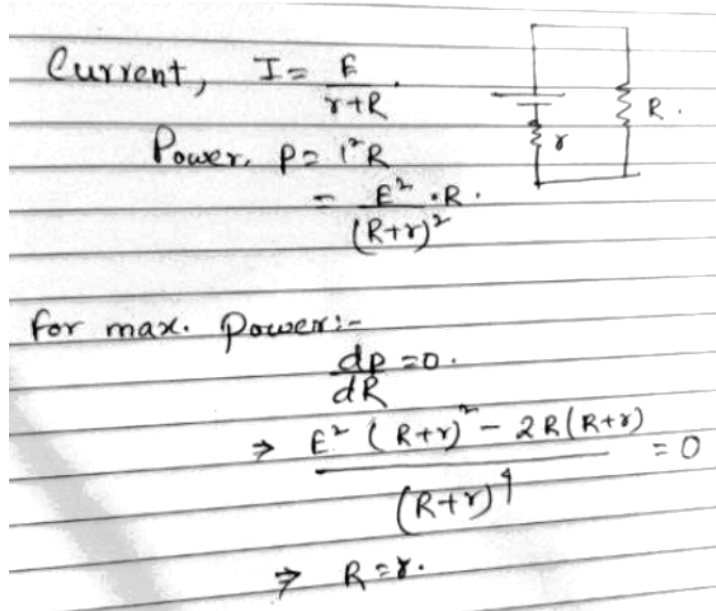 Current, I = E / (r+R).
R.
r
Power, P = i²R
= E² / (R+r)² . R.
for max. Power:-
dP/dR = 0.
⇒ E² (R+r)² - 2R(R+r) / (R+r)⁴ = 0
⇒ R = r.